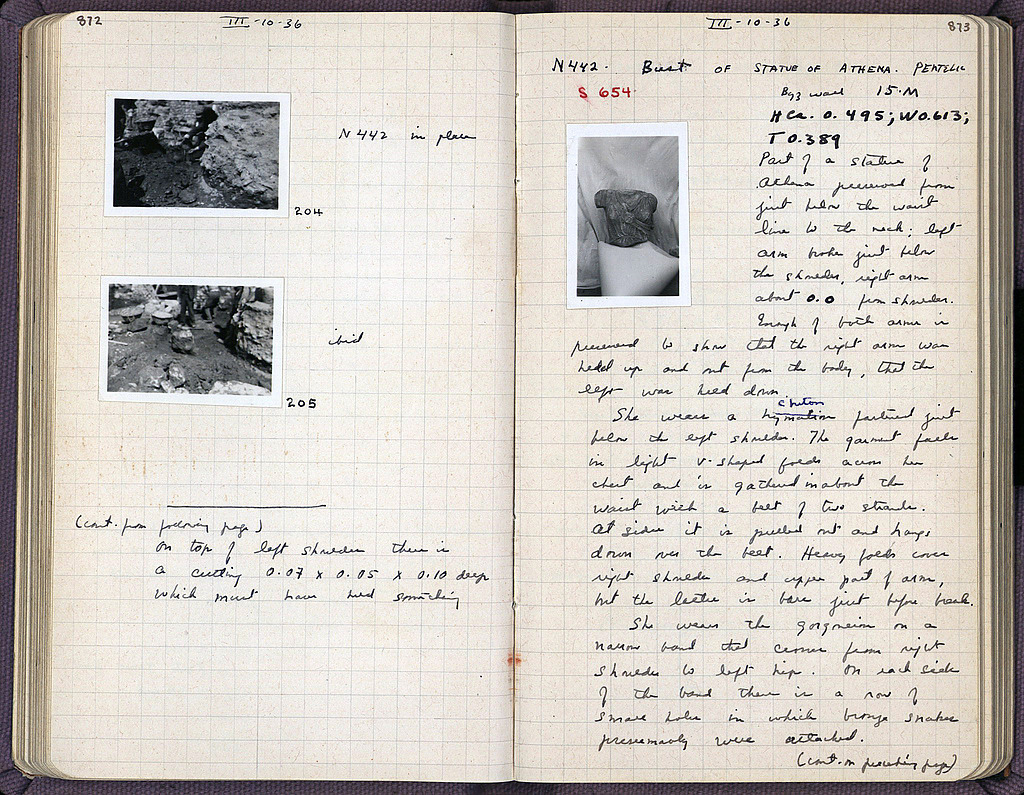 872
III-10-36
N 442 in place
204
ibid
205
(cont. from following page)
on top of left shoulder there is
a cutting 0.07 x 0.05 x 0.10 deep
which must have held something
III-10-36
873
N 442. Bust OF STATUE OF ATHENA. PENTELIC
S 654
Byz wall 15.M
H Ca. 0.495; W 0.613;
T 0.389
Part of a statue of
Athena preserved from
just below the waist
line to the neck; left
arm broke just below
the shoulder, right arm
about 0.0 from shoulder.
Enough of both arms is
preserved to show that the right arm was
held up and out from the body, that the
left was held down.
chiton
She wears a hymation fastened just
below the left shoulder. The garment falls
in light V-shaped folds across her
chest and is gathered in about the
waist with a belt of two strands.
At sides it is pulled out and hangs
down over the belt. Heavy folds cover
right shoulder and upper part of arm,
but the latter is bare just before break.
She wears the gorgoneion on a
narrow band that crosses from right
shoulder to left hip. On each side
of the band there is a row of
small holes in which bronze snakes
presumably were attached.
(cont. on preceding page)